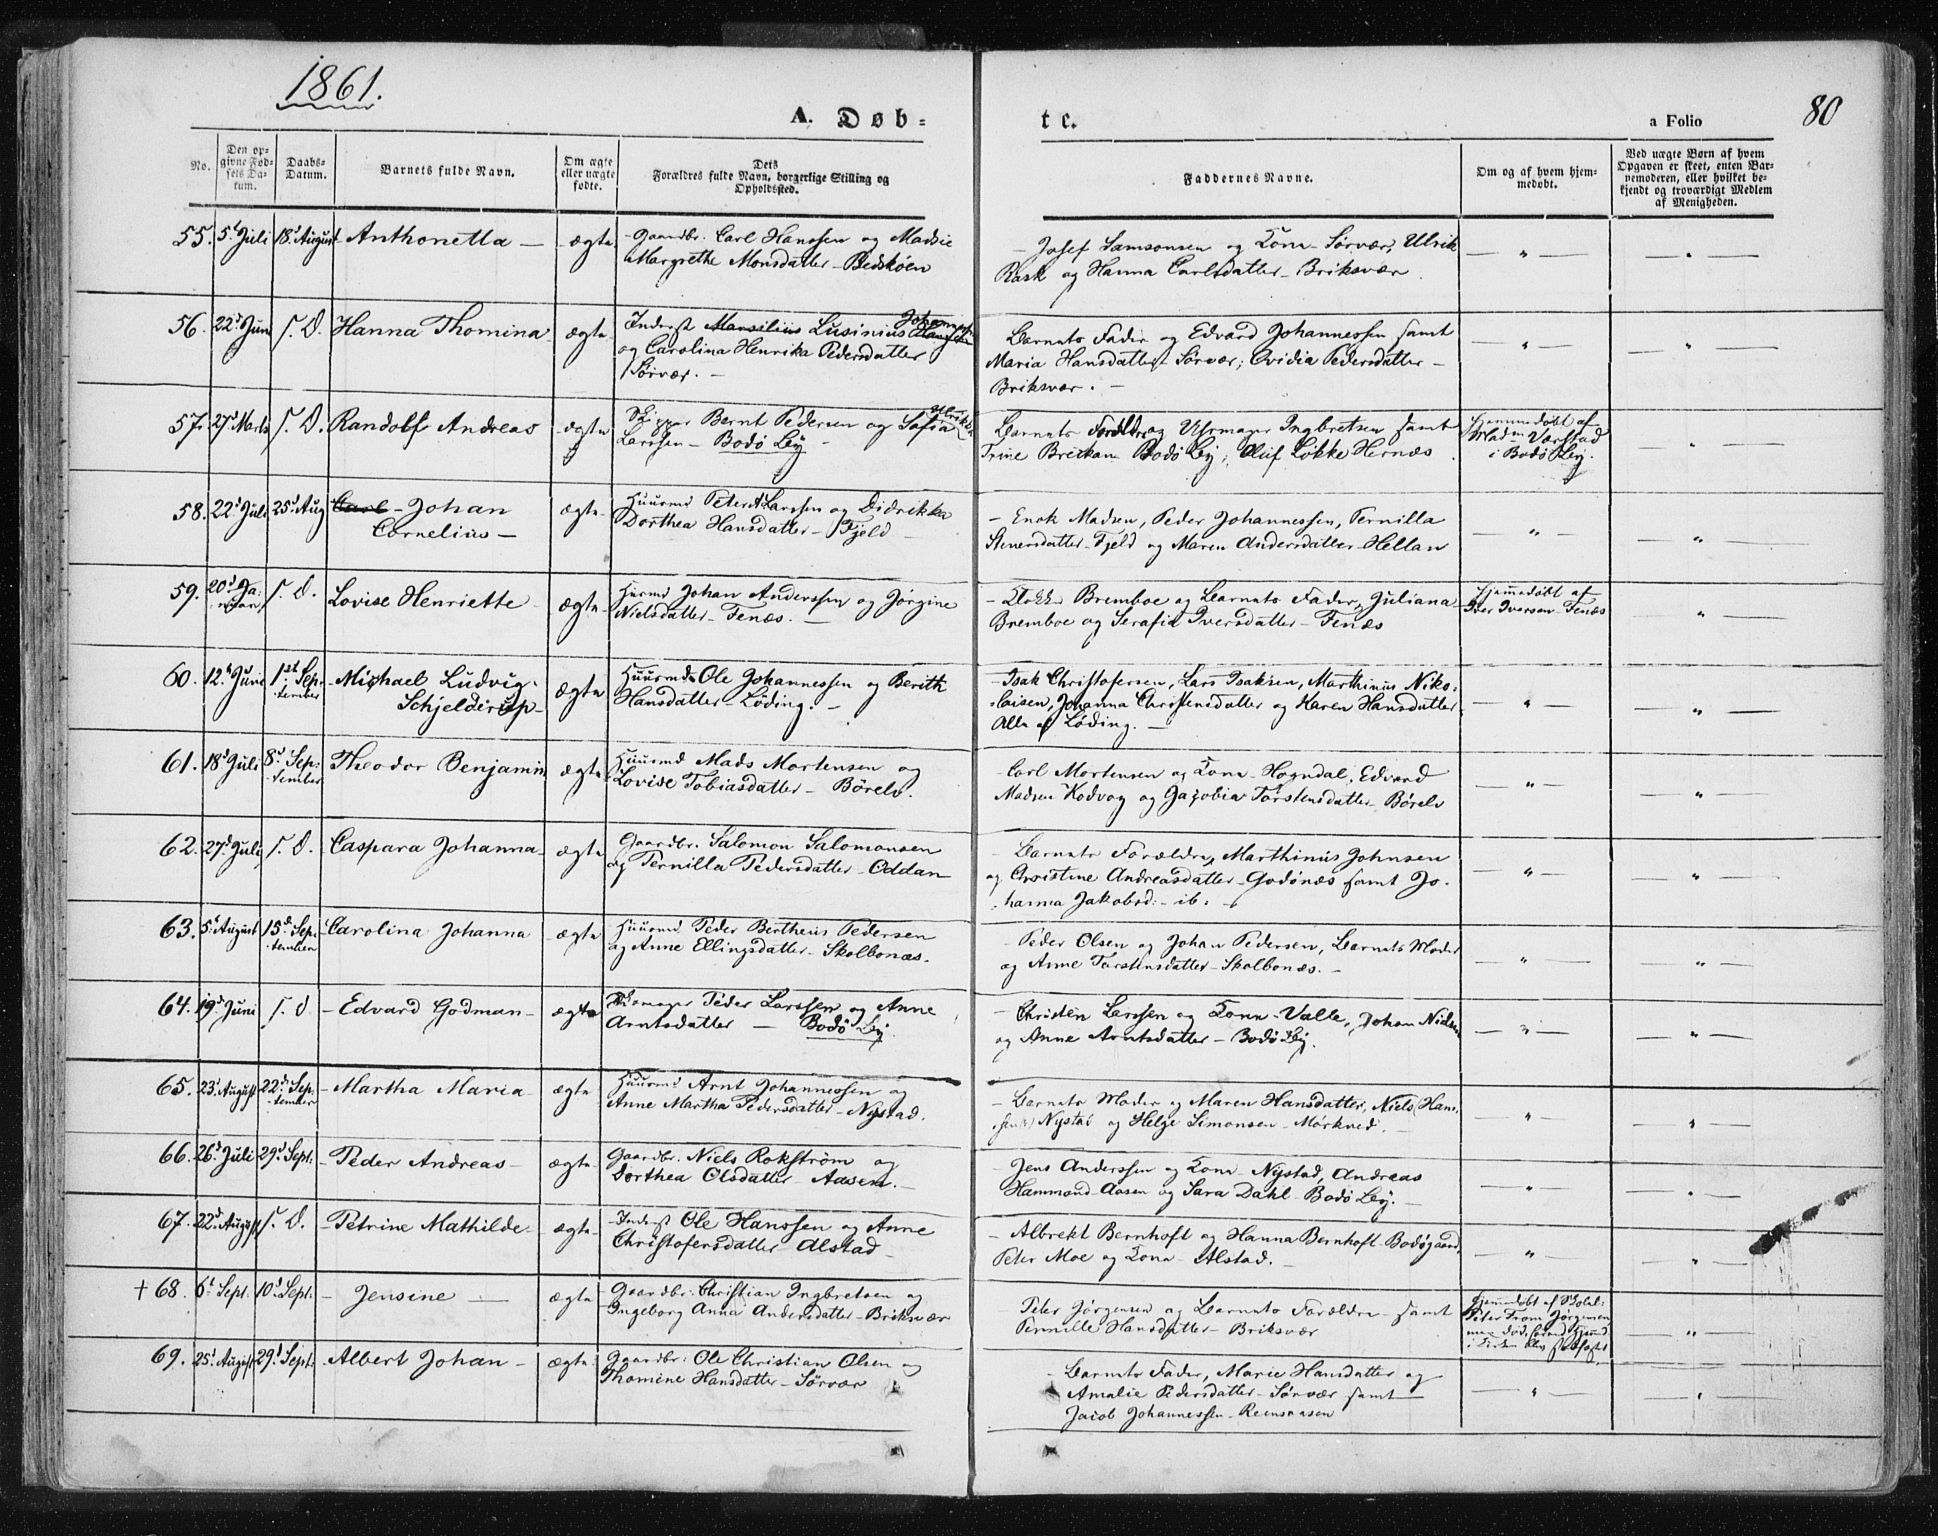 1861.
80
A. Døb-
te.
a Folio
No.
Den opgivne Fødsels Datum.
Daabs-Datum.
Barnets fulde Navn.
Om ægte eller uægte fødte.
Dets Forældres fulde Navn, borgerlige Stilling og Opholdssted.
Faddernes Navne.
Om og af hvem hjemmedøbt.
Ved uægte Børn af hvem Opgaven er skeet, enten Barnemoderen, eller hvilket bekjendt og troværdigt Medlem af Menigheden.
55. 5t Juli 18d August Anthonetta — ægte Gaardbr: Carl Hanssen og Madsie
Margrethe Monsdatter - Bedskøen
- Josef Samsonsen og Kone - Sørvær, Ulrik
Rask og Hanna Carlsdatter - Briksvær.
56. 22d Juni S. D. Hanna Thomina ægte Inderst Marsilius Lusinius Johannessen
og Carolina Henrika Pedersdatter
Sørvær. -
Barnets Fader og Edvard Johannessen samt
Maria Hansdatter Sørvær; Ovidia Pedersdatter -
Briksvær. -
57. 27d Marts S. D. Randolf Andreas ægte Skipper Bernt Pedersen og Sofia Ulrikka
Larssen - Bodø By -
Barnets Forældre og Uhrmager Ingbretsen samt
Trine Breikan Bodø By; Oluf Løkke Hernæs
Hjemmedøbt af
Madm Værstad
i Bodø By.
58. 22d Juli 25d Aug Carl - Johan
Cornelius -
ægte Huusmd Peter A. Larssen og Didrikka
Dorthea Hansdatter - Fjeld -
- Enok Madsen, Peder Johannessen, Pernilla
Stenersdatter - Fjeld og Maren Andersdatter - Hellan
59. 20d Januar S. D. Lovise Henriette ægte Huusmd Johan Anderssen og Jørgine
Nielsdatter - Fenæs. -
- Klokker Bremboe og Barnets Fader, Juliana
Bremboe og Serafia Iversdatter - Fenæs
Hjemmedøbt af
Iver Iversen - Fenæs
60. 12t Juni 1st September Michael Ludvig
Schjelderup -
ægte Huusmd Ole Johannessen og Berith
Hansdatter - Løding. -
- Isak Christofersen, Lars Isaksen, Marthinus Niko-
laisen, Johanna Christensdatter og Karen Hansdatter
Alle af Løding. -
61. 18d Juli 8d September Theodor Benjamin ægte Huusmd Mads Mortensen og
Lovise Tobiasdatter - Børelv.
Carl Mortensen og Kone - Hogndal, Edvard
Madsen Kodvog og Jacobia Torstensdatter - Børelv
62. 27d Juli S. D. Caspara Johanna ægte Gaardbr. Salomon Salomonsen
og Pernilla Pedersdatter - Oddan
- Barnets Forældre, Marthinus Johnsen
og Christine Andreasdatter - Godønæs samt Jo-
hanna Jakobsd: - ib: -
63. 5t August 15d September Carolina Johanna ægte Huusmd Peder Bertheus Pedersen
og Anne Ellingsdatter - Skolbonæs.
- Peder Olsen og Johan Pedersen, Barnets Moder
og Anne Torstensdatter - Skolbonæs. -
64. 19d Juni S. D. - Edvard Godman - ægte Skomager Peder Larssen og Anne
Arntsdatter — Bodø By.
- Christen Larssen og Kone - Valle, Johan Nielsen
og Anne Arntsdatter - Bodø By.
65. 23d August 22d September - Martha Maria ægte Huusmd Arnt Johannessen og
Anne Martha Pedersdatter - Nystad.
- Barnets Moder og Maren Hansdatter, Niels Hans-
sen Nystad og Helge Simonsen - Mørkved. -
66. 26d Juli 29d Sept: Peder Andreas - ægte Gaardbr. Niels Rokstrøm og
Dorthea Olsdatter - Aasen. -
- Jens Anderssen og Kone - Nystad, Andreas
Hammond - Aasen og Sara Dahl - Bodø By. -
67. 22d August S. D. - Petrine Mathilde - ægte Inderst Ole Hanssen og Anne
Christofersdatter - Alstad -
- Albrekt Bernhoft og Hanna Bernhoft - Bodøgaard,
Peter Moe og Kone - Alstad. -
+ 68. 6t Sept. 10d Sept. - Jensine — ægte Gaardbr: Christian Ingbretsen og
Ingeborg Anna Andersdatter - Briksvær
- Peter Jørgensen og Barnets Forældre samt
Pernille Hansdatter - Briksvær
Hjemmedøbt af Skolel:
Peter From Jørgensen
69. 25d August 29d Sept: Albert Johan - ægte Gaardbr: Ole Christian Olsen og
Thomine Hansdatter - Sørvær
- Barnets Fader, Marie Hansdatter og
Amalie Pedersdatter - Sørvær samt
Jacob Johannessen - Reensaasen